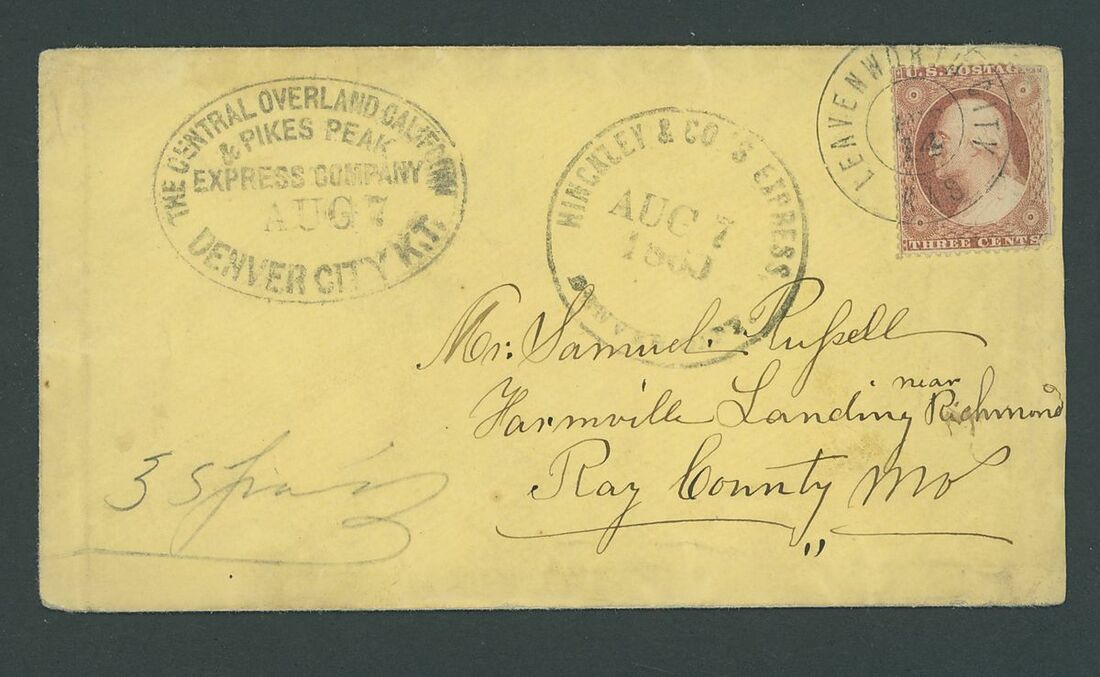 THE CENTRAL OVERLAND CALIFORNIA
& PIKES PEAK
EXPRESS COMPANY
AUG 7
DENVER CITY K.T.
HINCKLEY & CO'S EXPRESS
AUG 7
1860
DENVER CITY
LEAVENWORTH CITY
KAS
U.S. POSTAGE
THREE CENTS
Mr. Samuel Russell
Farmville Landing near Richmond
Ray County Mo
3